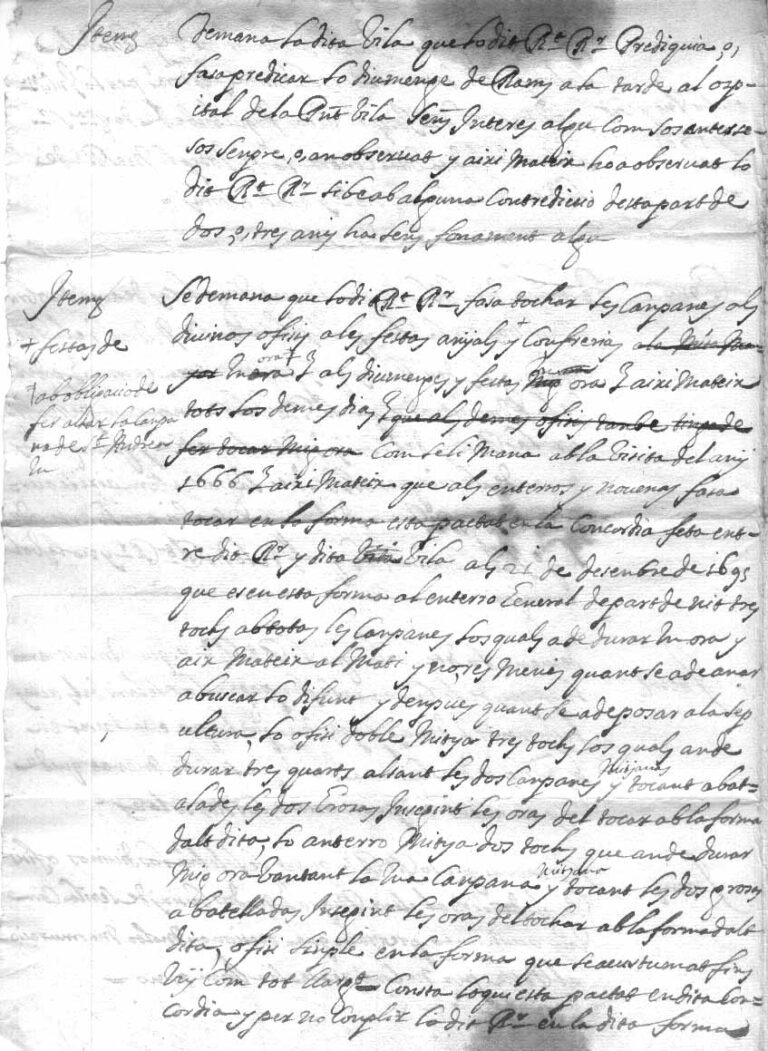 Item Demana la dita Vila que lo dit Rt Rr Prediquia, o,
fasa predicar lo diumenge de Rams a la tarde al osp-
ital de la Pnt Vila sens Interes algu com sos antese-
sos senpre, o, an observat y aixi Mateix ho a observat lo
dit Rt Rr si be ab alguna Contredictio desta part de
dos, o, tres anys ha sens fonament algu
Item Se demana que lo dit Rt Rr fasa tochar les Canpanes als
+ festas de
divinos ofisis a les festas anjals y + Confreries a la Misa Ma-
jor Un ora als diumenges y festas Mig ora aixi Mateix
† ab obligacio de
fer alsar la canpa
na de St Andreu
tots los demes dias que als demes ofisis tanbe tinga de
fer tocar Mig ora Com se li Mana ab la Visita del any
1666 aixi Mateix que als enterros y novenas fasa
tocar en la forma esta pactat en la Concordia feta ent-
re dit Rr y dita Vila als 21 de desenbre de 1695
que es en esta forma al enterro General de part de nit tres
tochs ab totas les Canpanes los quals a de durar Un ora y
aix Mateix al Mati y no,res Menis quant se a de anar
a buscar lo difunt y denpues quant se a de posar a la sep
ultura, lo ofisi doble Mitya tres tochs los quals an de
durar tres quarts alsant les dos Canpanes Mitjanes y tocant a bat-
alades les dos Grosas Insegint les oras del tocar ab la forma
dalt dita, lo anterro Mitya dos tochs que an de durar
Mig ora Vantant la Una Canpana Mitjana y tocant les dos grosas
a batelladas Insegint les oras del tochar ab la forma dalt
dita, ofisi sinple en la forma que se acustumat fins
Vuy Com tot llargt Consta lo qui esta pactat en dita Con-
cordia y per no Conplir lo dit Rr en la dita forma